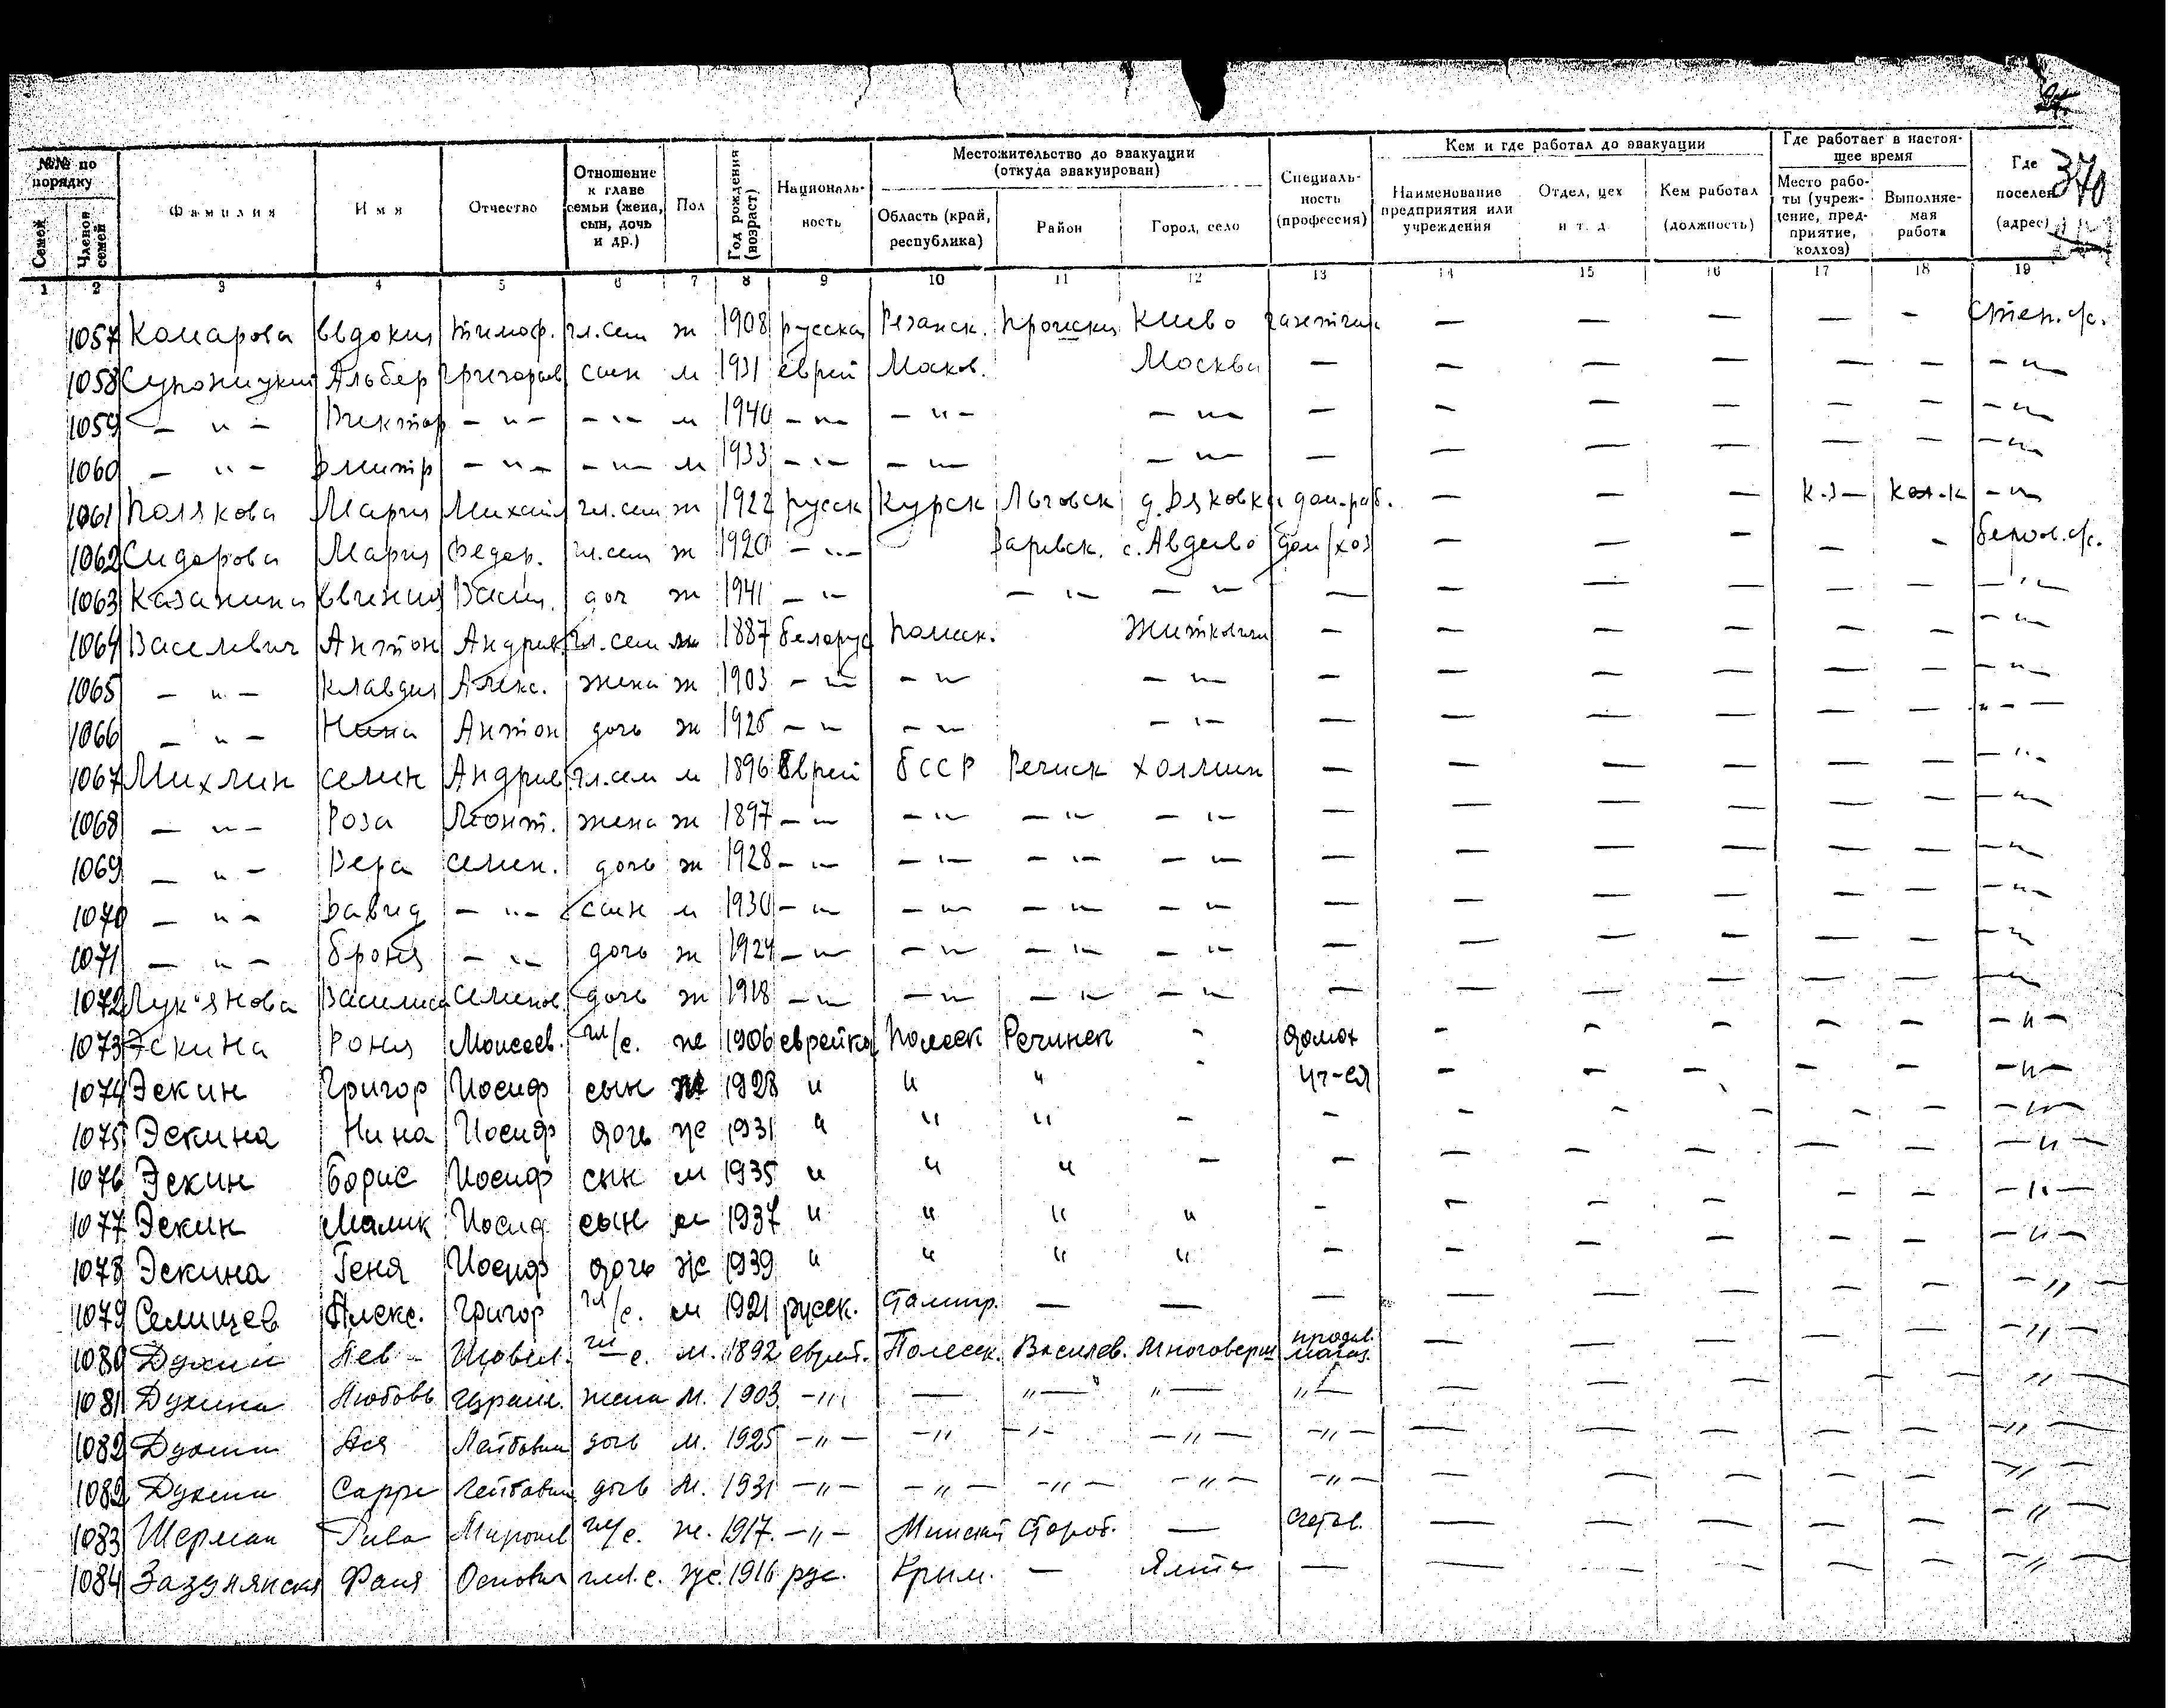 370
№№ по порядку
Семей
Членов семей
Фамилия
Имя
Отчество
Отношение к главе семьи (жена, сын, дочь и др.)
Пол
Год рождения (возраст)
Националь-ность
Местожительство до эвакуации (откуда эвакуирован)
Область (край, республика)
Район
Город, село
Специаль-ность (профессия)
Кем и где работал до эвакуации
Наименование предприятия или учреждения
Отдел, цех и т. д.
Кем работал (должность)
Где работает в настоя-щее время
Место рабо-ты (учреж-дение, пред-приятие, колхоз)
Выполняе-мая работа
Где поселен (адрес)
1 2 3 4 5 6 7 8 9 10 11 12 13 14 15 16 17 18 19
1057 Комарова Евдокия Тимоф. гл.сем ж 1908 русская Резанск. Пронски Киево — — — — - Степ. с/с.
1058 Альбер Григорьев сын м 1931 еврей Москов. Москва — — — — — — — "
1059 — " — Виктор — " — — " — м 1940 — " — — " — — " — — — — — — — — "
1060 — " — Дмитр — " — — " — м 1933 — " — — " — — " — — — — — — — — "
1061 Полякова Мария Михайл гл.сем ж 1922 русск Курск Льговск д. дом-раб. — — — к-з — кол-к — "
1062 Сидорова Мария Федор. гл.сем ж 1920 — " — с. Авдеево дом/хоз — — — — - с/с.
1063 Казанина Евгения Васил. доч ж 1941 — " — — " — — " — — — — — — — — " —
1064 Василевич Антон Андрив гл.сем м 1887 белорус Полеск. Житковичи — — — — — — — "
1065 — " — Клавдия Алекс. жена ж 1903 — " — — " — — " — — — — — — — — "
1066 — " — Нина Антон дочь ж 1925 — " — — " — — " — — — — — — — " — —
1067 Михлин Семен Андрив гл.сем м 1896 Еврей БССР Речиск Холмич — — — — — — — "
1068 — " — Роза Леонт. жена ж 1897 — " — — " — — " — — " — — — — — — — "
1069 — " — Вера Семен. дочь ж 1928 — " — — " — — " — — " — — — — — — — — "
1070 — " — Давид — " — сын м 1930 — " — — " — — " — — " — — — — — — — — "
1071 — " — Броня — " — дочь ж 1924 — " — — " — — " — — " — — — — — — — — "
1072 Лук'янова Василиса Семенов. дочь ж 1918 — " — — " — — " — — " — — — — — — — — "
1073 Эскина Роня Моисеев. гл/с. ж 1906 еврейка Полеск Речинск - домох - - - - - — " —
1074 Эскин Григор Иосиф сын 1928 " " " - уч-ся - - - - - — " —
1075 Эскина Нина Иосиф дочь ж 1931 " " " - - - - - - - — " —
1076 Эскин Борис Иосиф сын м 1935 " " " - - — — — — — — " —
1077 Эскин Малик Иосиф сын м 1937 " " " " - - - - - - — " —
1078 Эскина Геня Иосиф дочь ж 1939 " " " " - - - - - - — " —
1079 Селищев Алекс. Григор гл/с. м 1921 русск. Сталинр. — — — — — — — — — " —
1080 Духин Лев гл с. м. 1892 еврей. Полесск. Василев. продав. магаз. — — — — — — " —
1081 Духина Любовь жена м. 1903 — " — — " — " — " — — — — — — " —
1082 Духин Ася Лейбовна дочь м. 1925 — " — — " — " — — " — — " — — — — — — — " —
1082 Духин Сарра Лейбовна дочь м. 1931 — " — — " — — " — — " — — " — — — — — — — " —
1083 Шерман Рива Миронов гл/с. ж. 1917 — " — Минский Староб. — счетов. — — — — — — " —
1084 Фаня Осиповна гл.с. ж. 1916 рус. Крым. — Ялта — — — — — — — " —